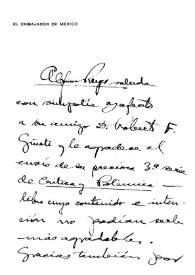 EL EMBAJADOR DE MÉXICO
Alfonso Reyes saluda
con simpatía y afecto
a su amigo D. Roberto F.
Giusti y le agradece el
envío de su preciosa 3ª serie
de Crítica y Polémica —
libro cuyo contenido e inten-
ción no podían serle
más agradables.
Gracias también por